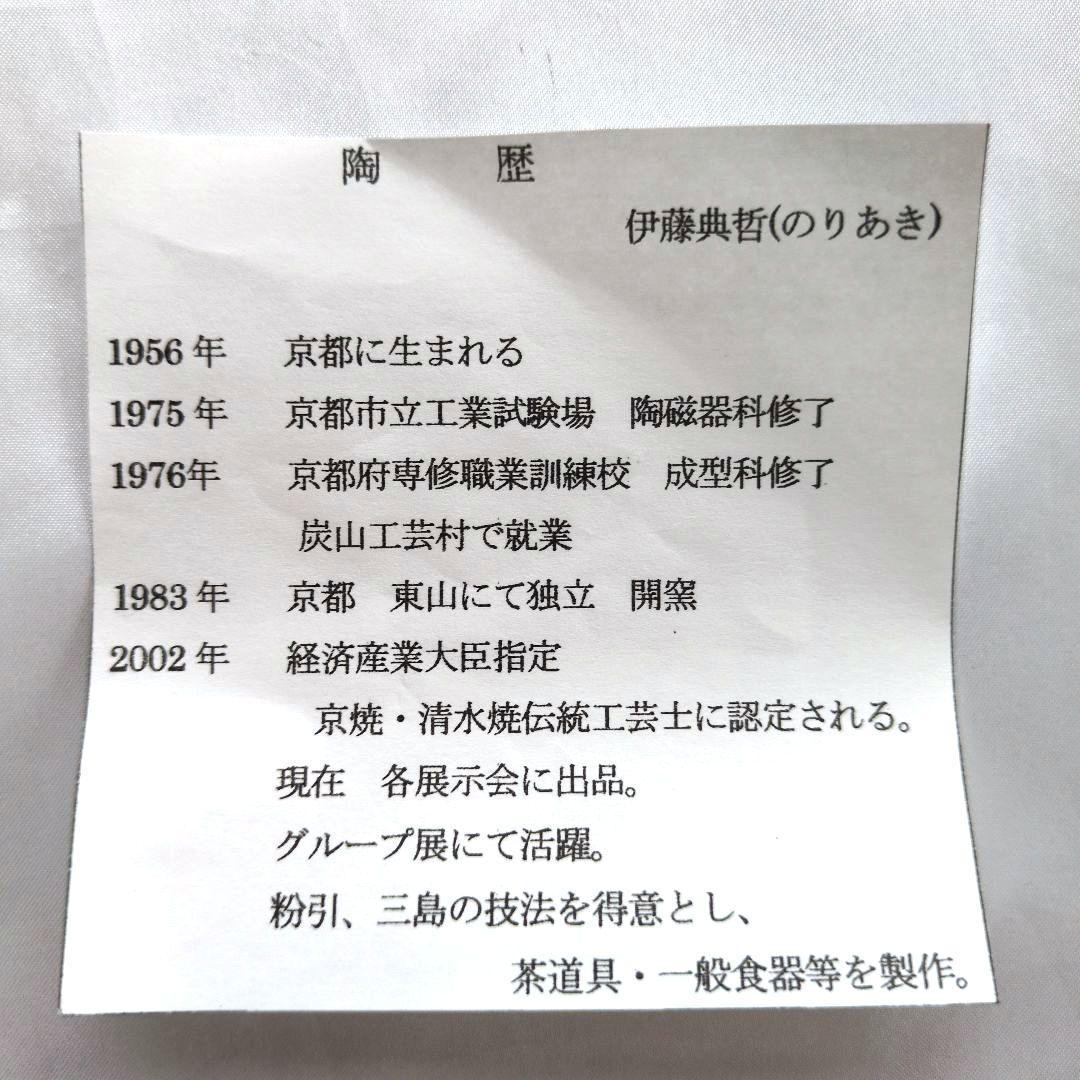 陶　歴
伊藤典哲(のりあき)
1956年　京都に生まれる
1975年　京都市立工業試験場　陶磁器科修了
1976年　京都府専修職業訓練校　成型科修了
炭山工芸村で就業
1983年　京都　東山にて独立　開窯
2002年　経済産業大臣指定
京焼・清水焼伝統工芸士に認定される。
現在　各展示会に出品。
グループ展にて活躍。
粉引、三島の技法を得意とし、
茶道具・一般食器等を製作。